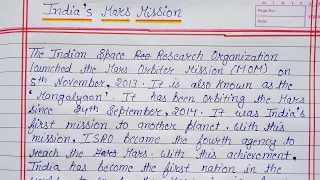 India's Mars Mission
Page No.
The Indian Space Reo Research Organization
launched the Mars Orbiter Mission (MOM) on
5th November, 2013. It is also known as the
'Mangalyaan'. It has been orbiting the Mars
since 24th September, 2014. It was India's
first mission to another planet. With this
mission, ISRO became the fourth agency to
reach the Mars Mars. With this achievement,
India has become the first nation in the